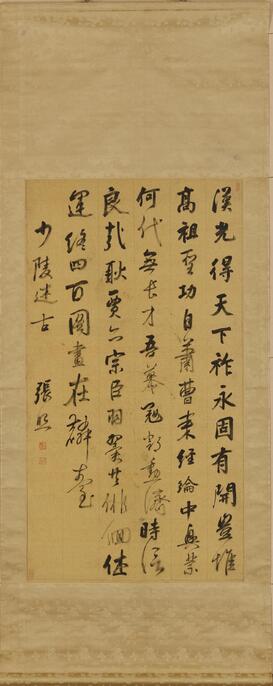 漢光得天下祚永固有開豈惟
高祖聖功自蕭曹来經綸中興業
何代無長才吾慕寇鄧勳濟時信
良哉耿賈亦宗臣羽翼共俳佪休
運終四百圖畫在臺
少陵述古 張照